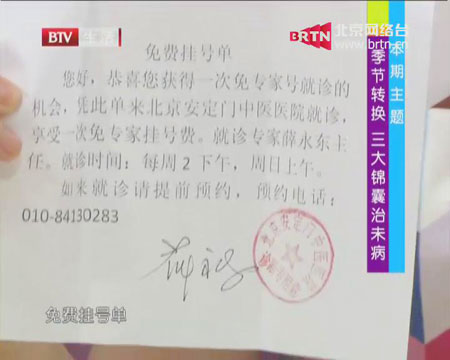 BTV 生活
BRTN 北京网络台
www.brtn.cn
本期主题
季节转换 三大锦囊治未病
免费挂号单
您好，恭喜您获得一次免专家号就诊的
机会，凭此单来北京安定门中医医院就诊，
享受一次免专家挂号费。就诊专家薛永东主
任。就诊时间：每周2下午，周日上午。
如来就诊请提前预约，预约电话：
010-84130283
免费挂号单